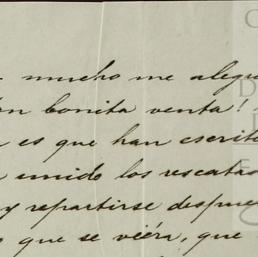 mucho me alegro
bonita venta!
es que han escrito
unido los rescatas
y repartirse despue
que se viera, que